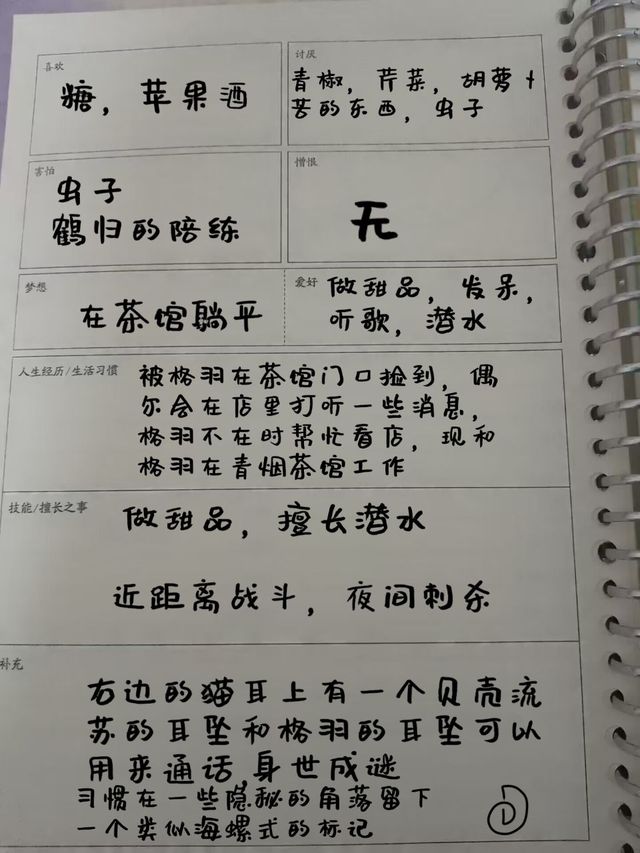 喜欢
糖，苹果酒
讨厌
青椒，芹菜，胡萝卜
苦的东西，虫子
害怕
虫子
鹤归的陪练
憎恨
无
梦想
在茶馆躺平
爱好
做甜品，发呆，
听歌，潜水
人生经历/生活习惯
被格羽在茶馆门口捡到，偶
尔会在店里打听一些消息，
格羽不在时帮忙看店，现和
格羽在青烟茶馆工作
技能/擅长之事
做甜品，擅长潜水
近距离战斗，夜间刺杀
补充
右边的猫耳上有一个贝壳流
苏的耳坠和格羽的耳坠可以
用来通话，身世成谜
习惯在一些隐秘的角落留下
一个类似海螺式的标记